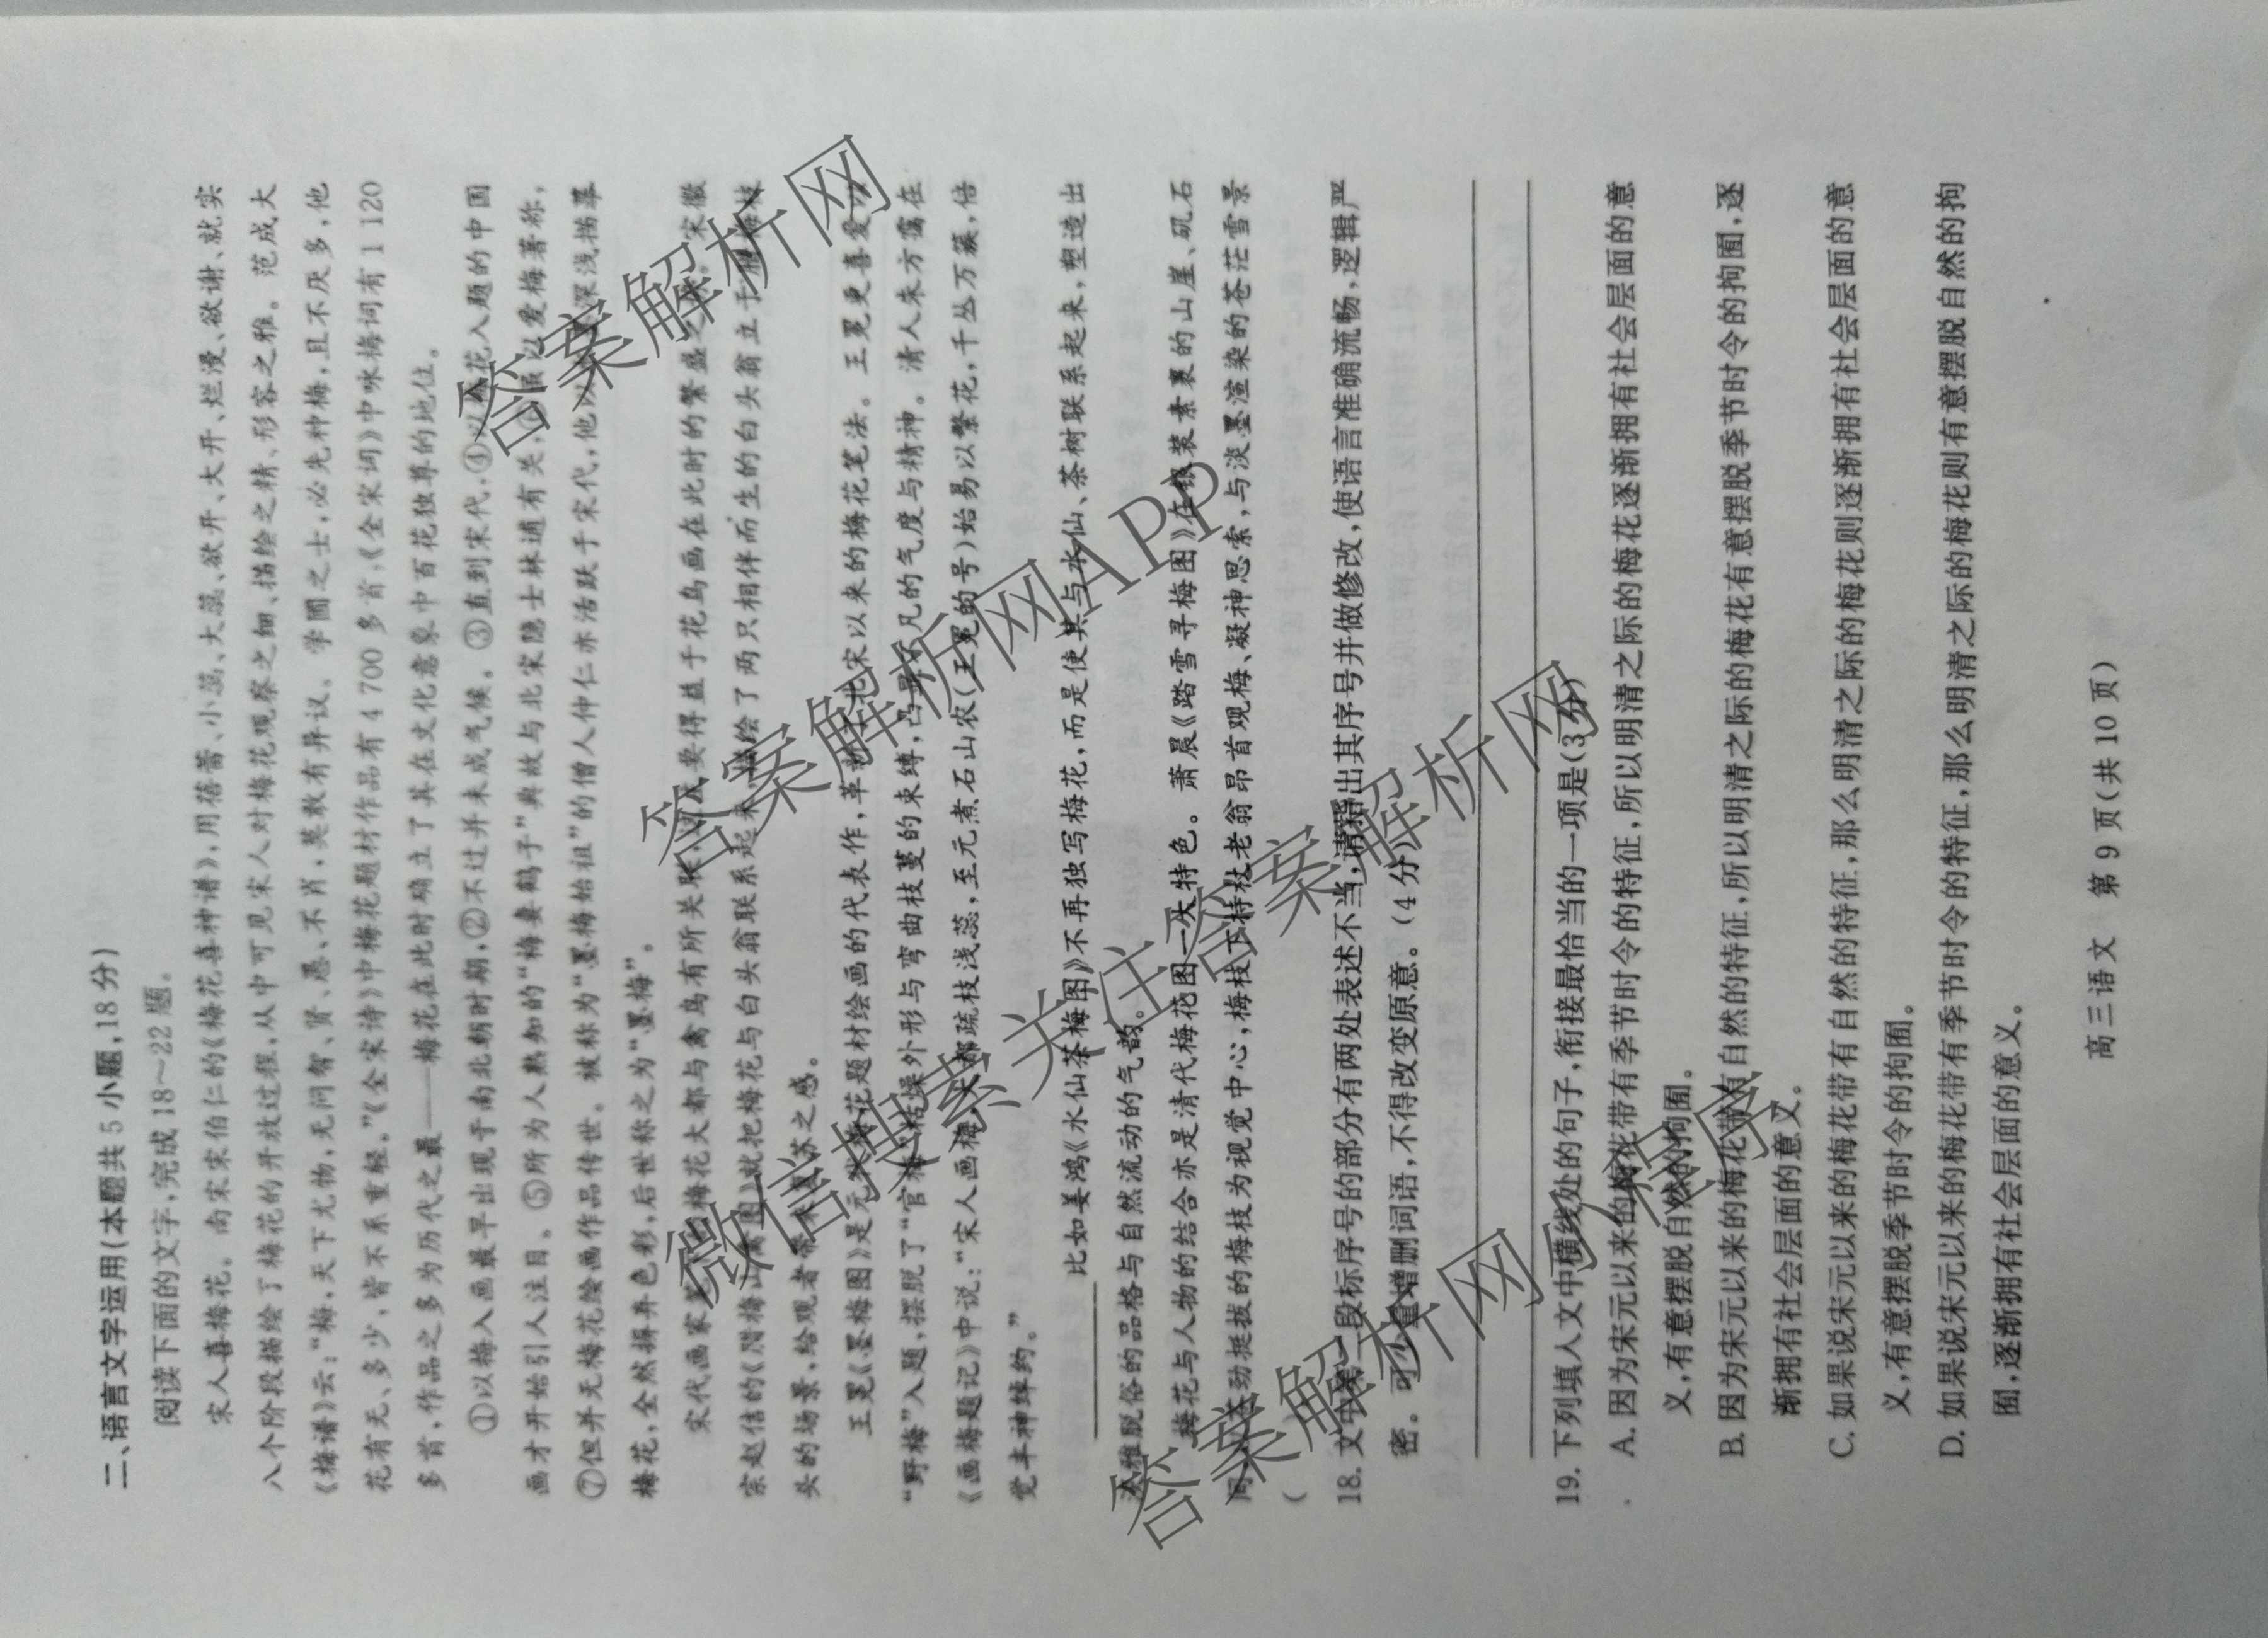 二、语言文字运用(本题共5小题,18分)
阅读下面的文字,完成18～22题。
宋人喜梅花。南宋宋伯仁的《梅花喜神谱》,用蓓蕾、小蕊、大蕊、欲开、大开、烂漫、欲谢、就实
八个阶段描绘了梅花的开放过程,从中可见宋人对梅花观察之细、描绘之精、形容之雅。范成大
《梅谱》云:“梅,天下尤物,无问智、贤、愚、不肖,莫敢有异议。学圃之士,必先种梅,且不厌多,他
花有无、多少,皆不系重轻。”《全宋诗》中梅花题材作品有4 700多首,《全宋词》中咏梅词有1 120
多首,作品之多为历代之最——梅花在此时确立了其在文化意象中百花独尊的地位。
①以梅入画最早出现于南北朝时期,②不过并未成气候。③直到宋代,④以梅花入题的中国
画才开始引人注目。⑤所为人熟知的“梅妻鹤子”典故与北宋隐士林逋有关,虽以爱梅著称,
⑦但并无梅花绘画作品传世。被称为“墨梅始祖”的僧人仲仁亦活跃于宋代,他以深浅描摹
梅花,全然摒弃色彩,后世称之为“墨梅”。
宋代画家笔下的梅花大都与禽鸟有所关联,这主要得益于花鸟画在此时的繁盛之。宋徽
宗赵佶的《腊梅山禽图》就把梅花与白头翁联系起来,描绘了两只相伴而生的白头翁立于腊梅枝
头的场景,给观者带来复苏之感。
王冕《墨梅图》是元代梅花题材绘画的代表作,革新了北宋以来的梅花笔法。王冕更喜爱以
“野梅”入题,摆脱了“官梅”枯燥外形与弯曲枝蔓的束缚,凸显不凡的气度与精神。清人朱方蔼在
《画梅题记》中说:“宋人画梅,大都疏枝浅蕊,至元煮石山农(王冕的号)始易以繁花,千丛万簇,倍
觉丰神绰约。”
比如姜鸿《水仙茶梅图》不再独写梅花,而是使其与水仙、茶树联系起来,塑造出
雅脱俗的品格与自然流动的气韵。
梅花与人物的结合亦是清代梅花图一大特色。萧晨《踏雪寻梅图》在银装素裹的山崖、矶石
间,以苍劲挺拔的梅枝为视觉中心,梅枝下持杖老翁昂首观梅、凝神思索,与淡墨渲染的苍茫雪景
(
18. 文中第二段标序号的部分有两处表述不当,请指出其序号并做修改,使语言准确流畅,逻辑严
密。可少量增删词语,不得改变原意。(4分)
19. 下列填入文中横线处的句子,衔接最恰当的一项是(3分)
A. 因为宋元以来的梅花带有季节时令的特征,所以明清之际的梅花逐渐拥有社会层面的意
义,有意摆脱自然的拘囿。
B. 因为宋元以来的梅花带有自然的特征,所以明清之际的梅花有意摆脱季节时令的拘囿,逐
渐拥有社会层面的意义。
C. 如果说宋元以来的梅花带有自然的特征,那么明清之际的梅花则逐渐拥有社会层面的意
义,有意摆脱季节时令的拘囿。
D. 如果说宋元以来的梅花带有季节时令的特征,那么明清之际的梅花则有意摆脱自然的拘
囿,逐渐拥有社会层面的意义。
高三语文 第9页(共10页)
答案解析网
答案解析网APP
微信搜索关注答案解析网
答案解析网小程序